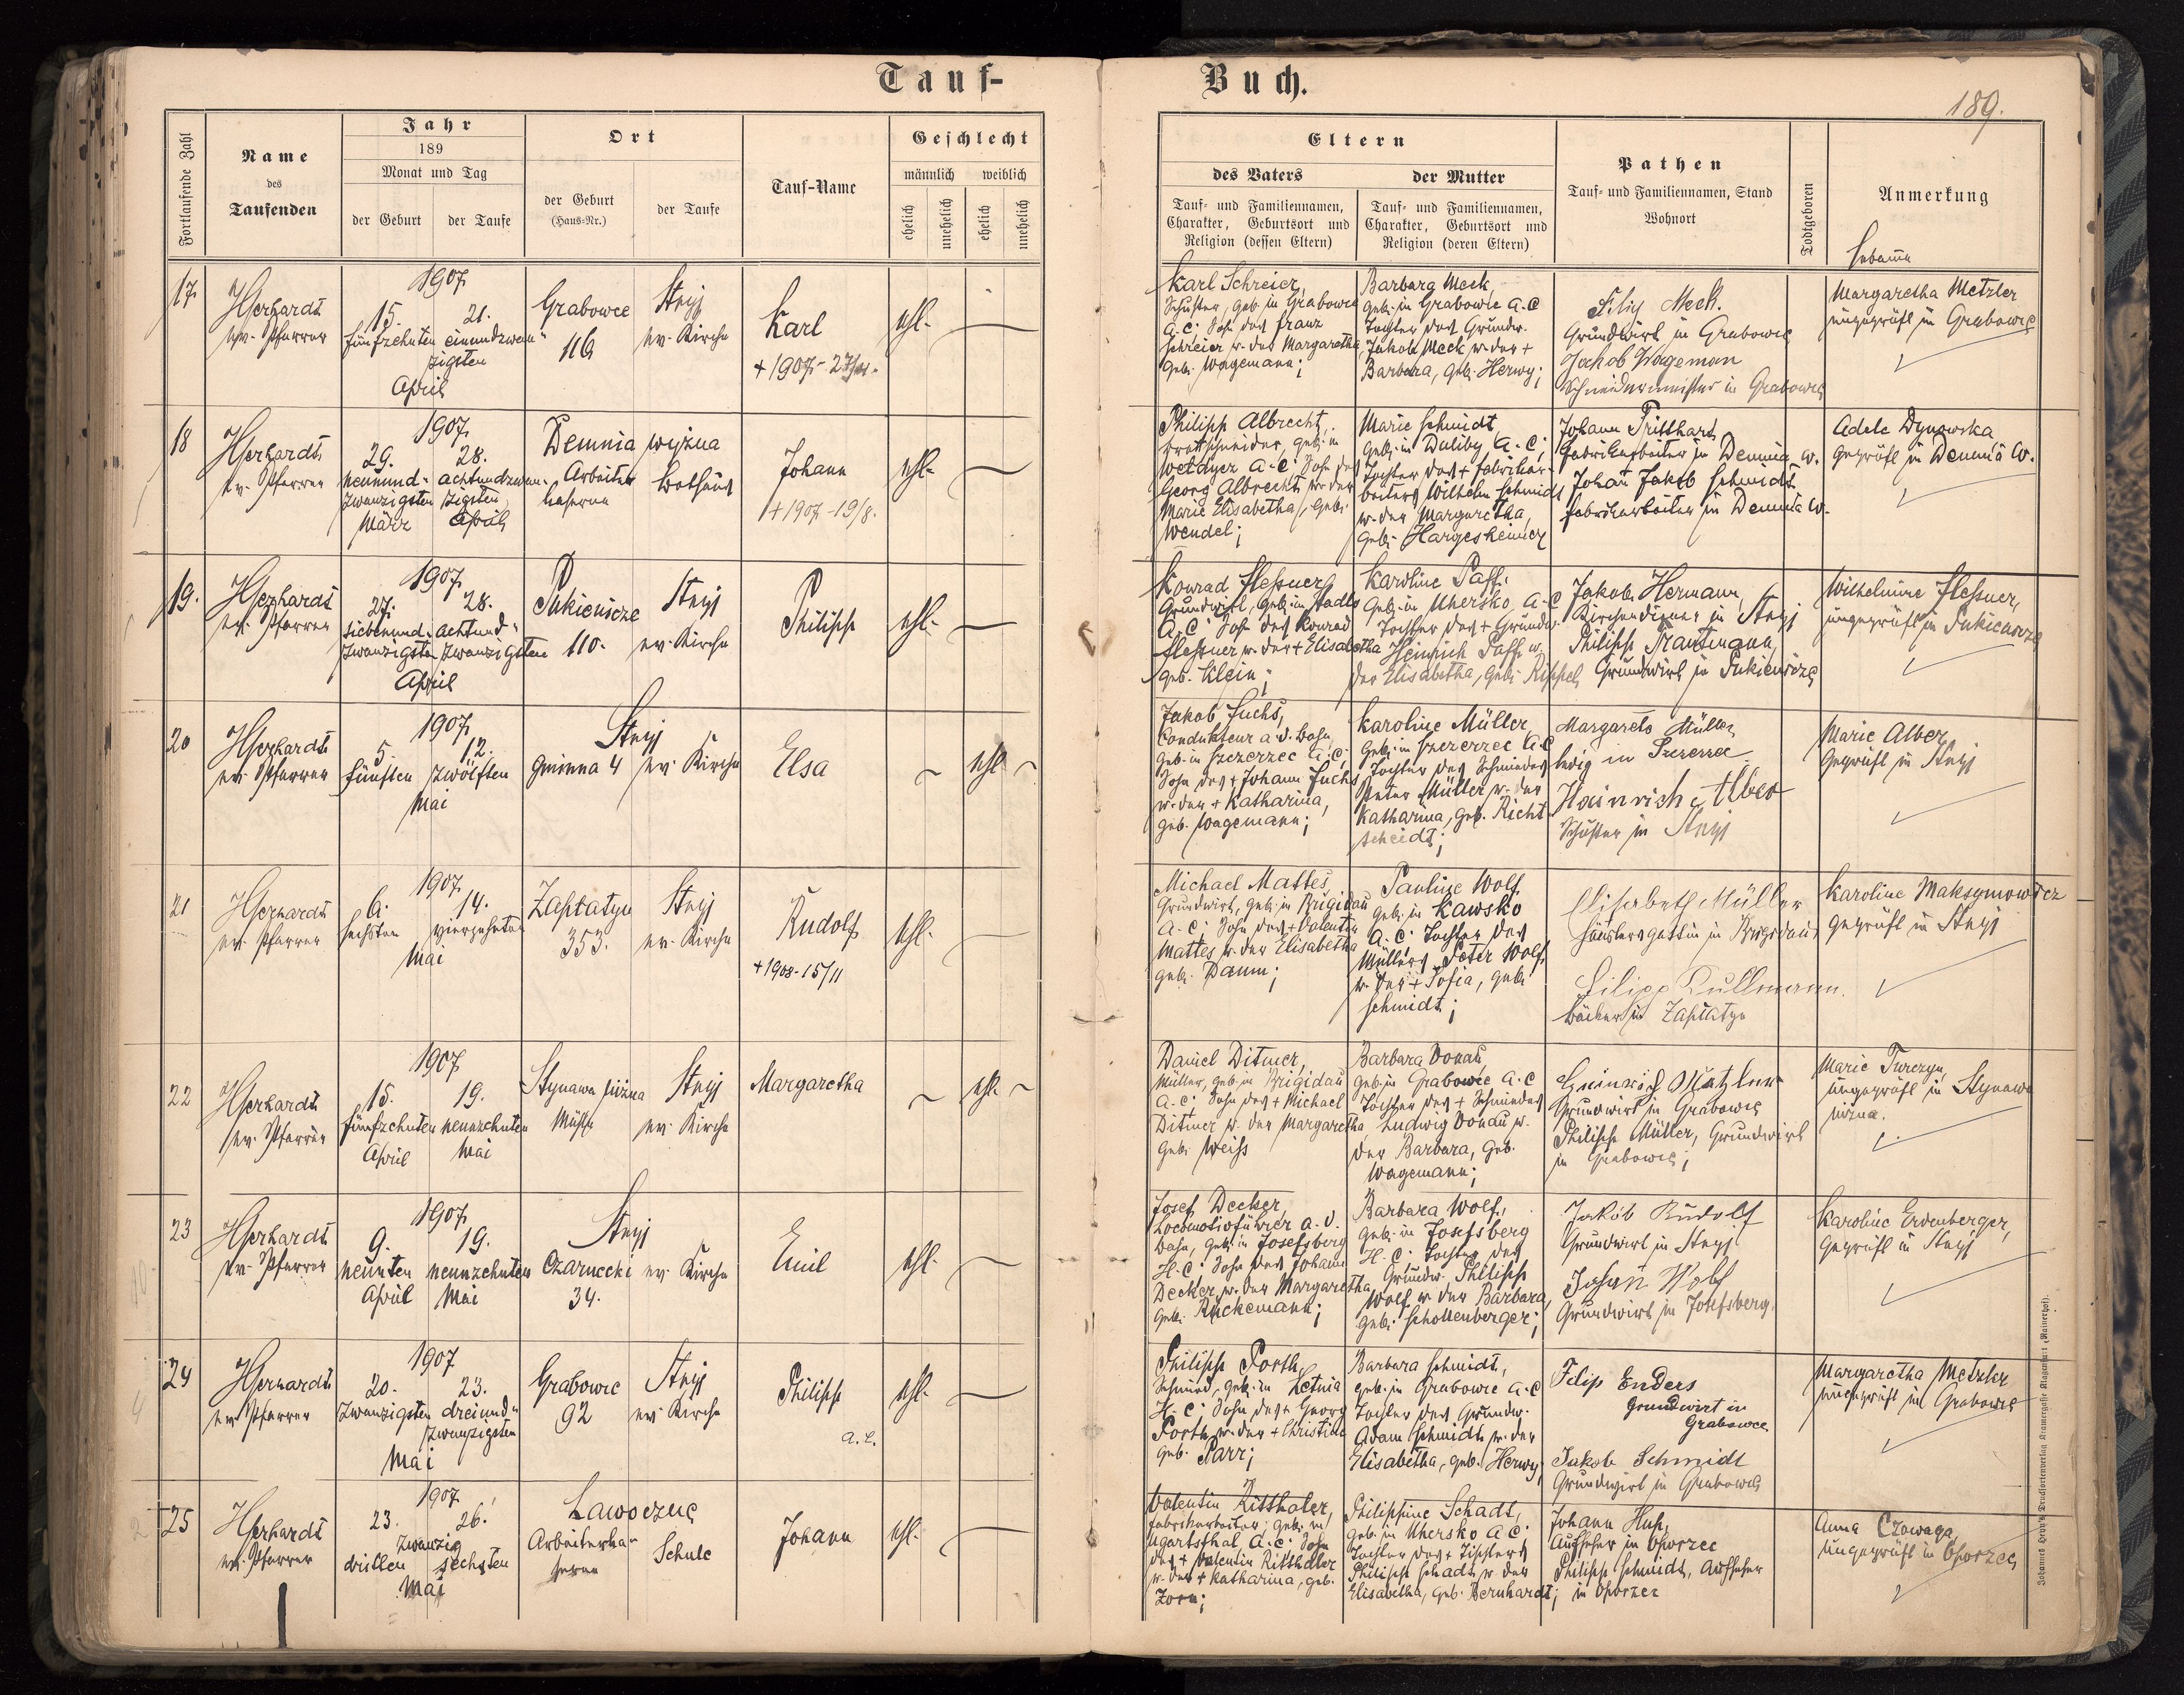 Tauf-
Buch.
189.
Fortlaufende Zahl
Name
des
Taufenden
Jahr
189
Monat und Tag
der Geburt
der Taufe
Ort
der Geburt
(Haus-Nr.)
der Taufe
Tauf-Name
Geschlecht
männlich
weiblich
ehelich
unehelich
ehelich
unehelich
Eltern
des Vaters
Tauf- und Familiennamen,
Charakter, Geburtsort und
Religion (dessen Eltern)
der Mutter
Tauf- und Familiennamen,
Charakter, Geburtsort und
Religion (deren Eltern)
Pathen
Tauf- und Familiennamen, Stand
Wohnort
Todtgeboren
Anmerkung
Hebamme
17
ev. Pfarrer
1907
15.
fünfzehnten
21.
einundzwan-
zigsten
April
Grabowce
116
Stryj
ev. Kirche
Karl
+ 1907 - 27/4.
ehl.
Karl Schreier,
Schuster, geb. in Grabowce
A.C. Sohn des Franz
Schreier u. der Margaretha
geb. Wagemann;
Barbara Meck,
geb. in Grabowce A.C
Tochter des Grundw.
Jakob Meck u. der +
Barbara, geb. Herwy;
Filip Meck.
Grundwirt in Grabowce
Jakob Wageman
Schneidermeister in Grabowce
Margaretha Metzler
ungeprüft in Grabowce
18
ev. Pfarrer
1907
29.
neunund-
zwanzigsten
März
28.
achtundzwan-
zigsten
April
Demnia wyżna
Arbeiter
kaserne
Bethaus
Johann
+ 1907 - 19/8.
ehl.
Philipp Albrecht,
Brettschneider, geb. in
Weldzyrz A.C. Sohn des
Georg Albrecht u. der
Marie Elisabetha, geb.
Wendel;
Marie Schmidt,
geb. in Duliby A.C;
Tochter des + Fabrikar-
beiters Wilhelm Schmidt
u. der Margaretha,
geb. Hargesheimer
Johann Tritthart
Fabrikarbeiter in Demnia w.
Johann Jakob Schmidt
Fabrikarbeiter in Demnia w.
Adele Dynowska,
geprüft in Demnia w.
19.
ev. Pfarrer
1907
27.
siebenund-
zwanzigsten
28.
achtund-
zwanzigsten
April
Pukienicze
110.
Stryj
ev. Kirche
Philipp
ehl.
Konrad Flessner,
Grundwirt, geb. in Stadlo
A.C. Sohn des Konrad
Flessner u. der + Elisabetha
geb. Klein;
Karoline Paff,
geb. in Uhersko, A.C
Tochter des + Grundw.
Heinrich Paff u.
der Elisabetha, geb. Rippel,
Jakob Hermann,
Kirchendiener in Stryj
Philipp Trautmann,
Grundwirt in Pukienicze
Wilhelmine Flessner,
ungeprüft in Pukienicze
20
ev. Pfarrer
1907
5.
fünften
12.
zwölften
Mai
Stryj
gminna 4
ev. Kirche
Elsa
ehl.
Jakob Fuchs,
Condukteur a. d. Bahn,
geb. in Szczerzec A.C.
Sohn des + Johann Fuchs
u. der + Katharina,
geb. Wagemann;
Karoline Müller
geb. in Szczerzec A.C
Tochter des Schmiedes
Peter Müller u. der
Katharina, geb. Richt-
scheidt;
Margareta Müller
ledig in Szczerzec
Hainrich Alber
Schuster in Stryj
Marie Alber
geprüft in Stryj
21
ev. Pfarrer
1907
6.
sechsten
14.
vierzehnten
Mai
Zaplatyn
353.
Stryj
ev. Kirche
Rudolf
+ 1908 - 15/11
ehl.
Michael Mattes,
Grundwirt, geb. in Brigidau
A.C. Sohn des + Valentin
Mattes u. der Elisabetha
geb. Daum;
Pauline Wolf
geb. in Kawsko
A.C. Tochter des
Müllers Peter Wolf
u. der + Sofia, geb.
Schmidt;
Elisabeth Müller
Häuslersgattin in Brigidau
Filipp Kullmann.
Bäcker in Zaplatyn
Karoline Maksymowicz
geprüft in Stryj
22
ev. Pfarrer
1907
15.
fünfzehnten
April
19.
neunzehnten
Mai
Synawa niżna
Mühle
Stryj
ev. Kirche
Margaretha
ehl.
Daniel Ditmer,
Müller, geb. in Brigidau
A.C. Sohn des + Michael
Ditmer u. der Margaretha
geb. Weiss
Barbara Donau,
geb. in Grabowce A.C
Tochter des + Schmiedes
Ludwig Donau u.
der Barbara, geb.
Wagemann;
Heinrich Metzler
Grundwirt in Grabowce
Philipp Müller, Grundwirt
in Grabowce;
Marie Turczyn,
ungeprüft in Synawa
niżna.
23
ev. Pfarrer
1907
9.
neunten
April
19.
neunzehnten
Mai
Stryj
Czarnecki
34.
ev. Kirche
Emil
ehl.
Josef Decker,
Locomotivführer a. d.
Bahn, geb. in Josefsberg
H.C. Sohn des Johann
Decker u. der Margaretha
geb. Rückemann;
Barbara Wolf,
geb. in Josefsberg
H.C. Tochter des
Grundw. Philipp
Wolf u. der Barbara,
geb. Schollenberger;
Jakob Rudolf
Grundwirt in Stryj
Johan Wolf
Grundwirt in Josefsberg.
Karoline Erdenberger,
geprüft in Stryj
24
ev. Pfarrer
1907
20.
zwanzigsten
23.
dreiund-
zwanzigsten
Mai
Grabowce
92
Stryj
ev. Kirche
Philipp
ehl.
Philipp Porth,
Schmied, geb. in Letnia
H.C. Sohn des + Georg
Porth u. der + Christine
geb. Parr;
Barbara Schmidt,
geb. in Grabowce A.C
Tochter des Grundw.
Adam Schmidt u. der
Elisabetha, geb. Herwy
Filip Enders
Grundwirt in
Grabowce
Jakob Schmidt
Grundwirt in Grabowce
Margaretha Metzler
ungeprüft in Grabowce
25
ev. Pfarrer
1907
23.
26.
zwanzig
dritten
sechsten
Mai
Lawoczne
Arbeiterka-
serne
Schule
Johann
ehl.
Valentin Ritthaler,
Fabrikarbeiter, geb. in
Ugartsthal A.C. Sohn
des + Valentin Ritthaler
u. der + Katharina, geb.
Zorn;
Philippine Schadt,
geb. in Uhersko A.C.
Tochter des + Tischlers
Philipp Schadt u. der
Elisabetha, geb. Bernhardt;
Johann Hup,
Aufseher in Oporzec
Philipp Schmidt, Aufseher
in Oporzec
Anna Czowaga,
ungeprüft in Oporzec